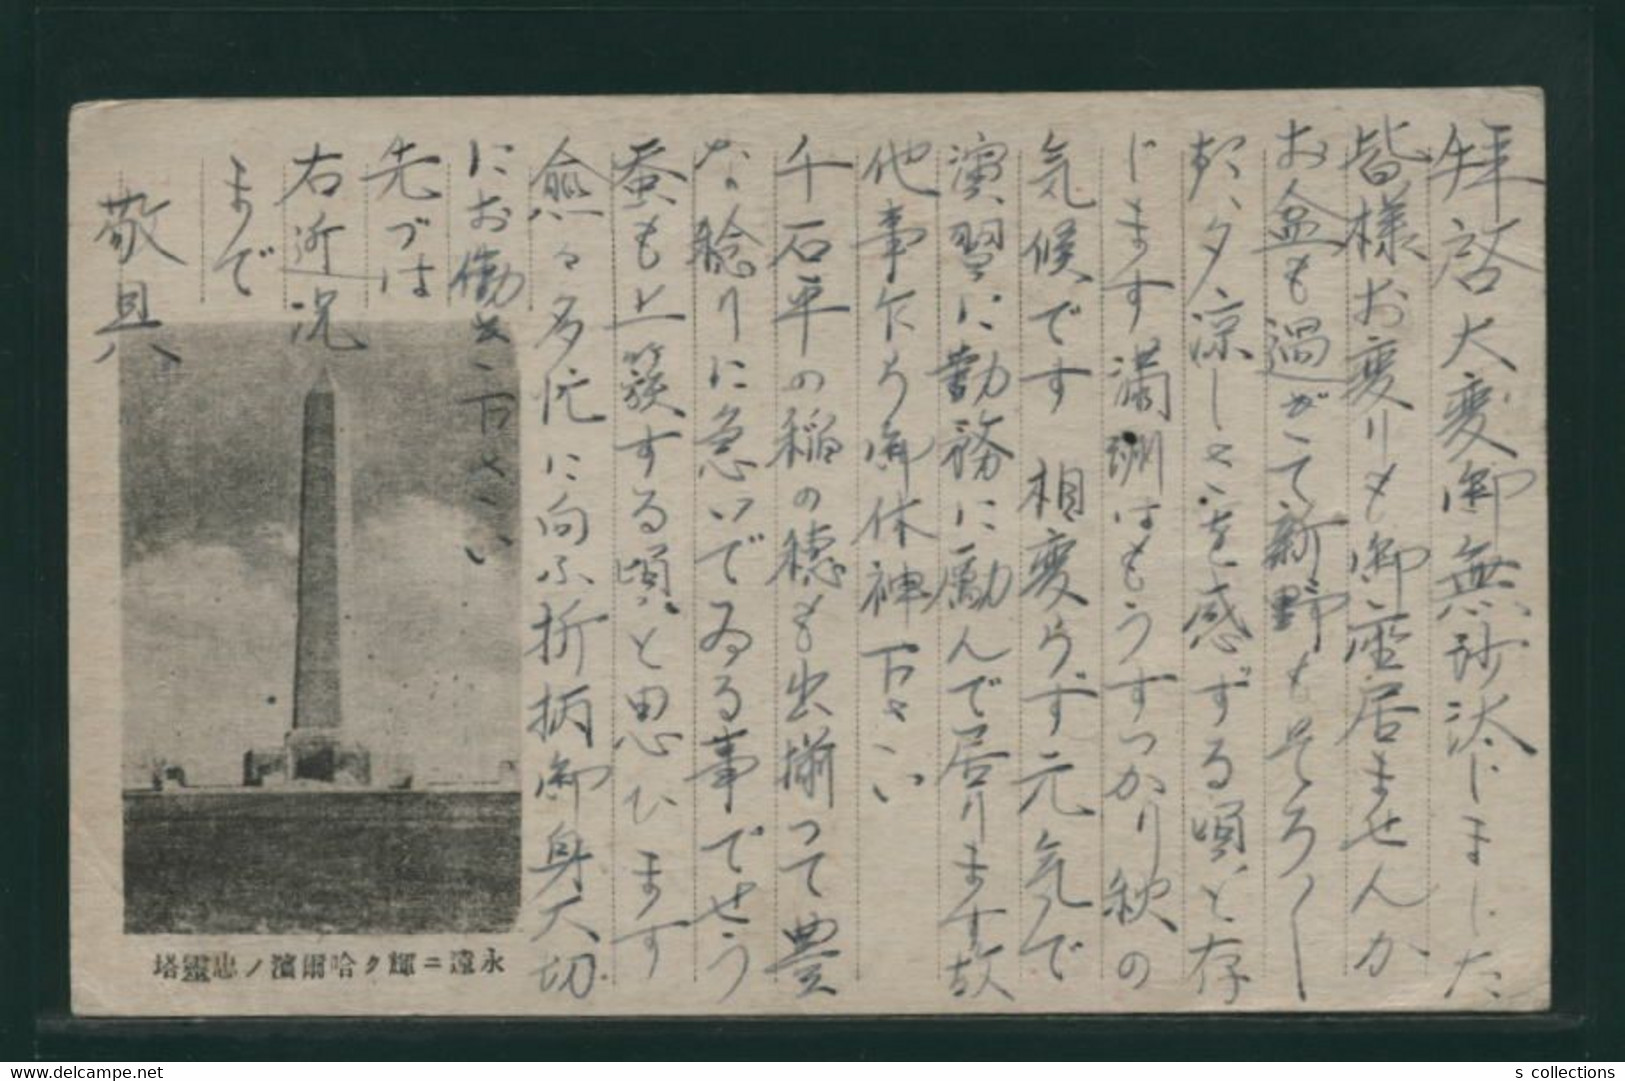 拝啓大変御無沙汰じました
皆様お変りも御座居ませんか
お盆も過ぎて新野もそろ〱
朝夕涼しさを感ずる頃と存
じます満洲はもうすっかり秋の
気候です 相変らず元気で
演習に勤務に励んで居ります故
他事乍ら御休神下さい
千石平の稲の穂も出揃って豊
な稔りに急いでゐる事でせう
蚕も上簇する頃と思ひます
愈々多忙に向ふ折柄御身大切
にお働き下さい
先づは
右近況
まで
敬具
永遠ニ輝ク哈爾濱ノ忠靈塔
s collections